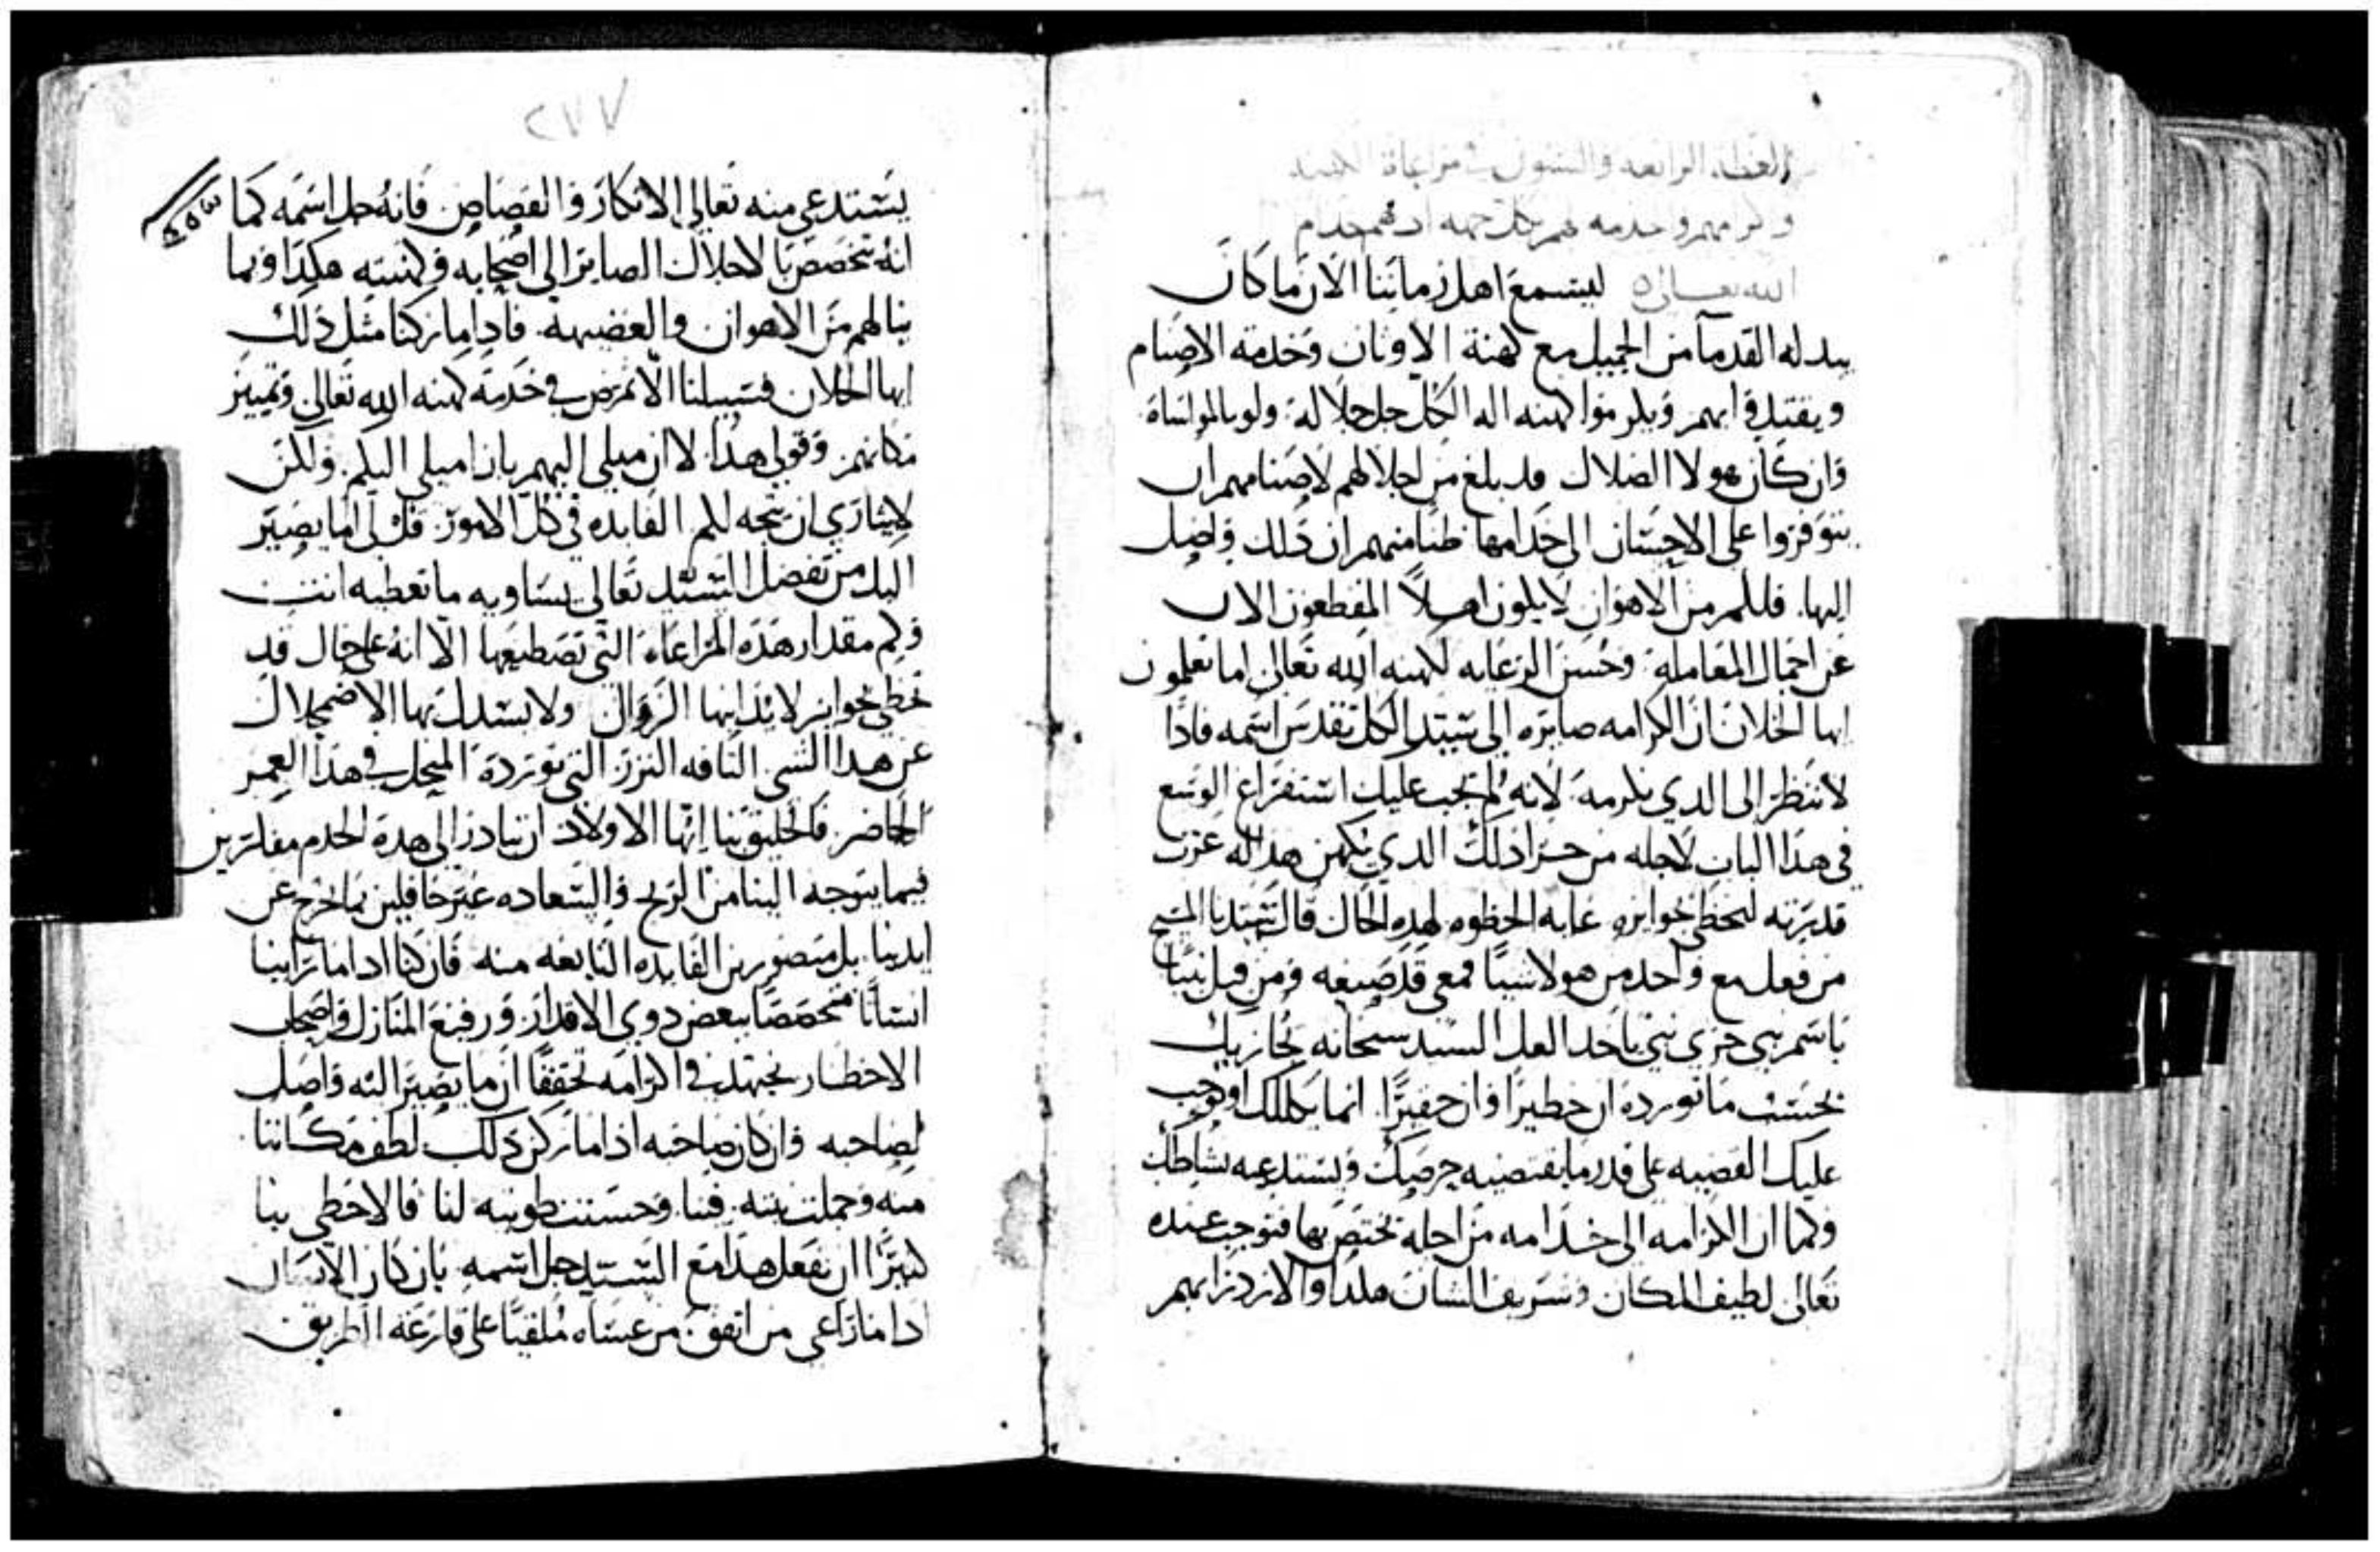 العظه الرابعه والستون في مراعاة الكهنه
وكرمهم وخدمه من كل جهه اد هم خدام
الله تعالى ليسمع اهل زماننا الان ما كان
يبدله القدما من الجميل مع كهنة الاوثان وخدمة الاصنام
ويقتدي بهم ويكرموا كهنه اله الكل جل جلاله ولو بالمواساة
وان كان هولا الضلال قد بلغ من اجلالهم لاصنامهم ان
يتوفروا على الاحسان الى خدامها ظنا منهم ان دلك واصل
اليها فلكم من الاهوان لا يلون اصلا المقطعون الان
عن اجمال المعامله وحسن الرعايه لكهنه الله تعالى اما تعلمون
ايها الخلان ان الكرامه صايره الى سيد الكل تقدس اسمه فادا
لا تنظر الى الدي تكرمه لانه لم يجب عليك استفراغ الوسع
في هدا الباب لاجله من جرا دلك الدي يكهن هدا له عزت
قدرته لتحظى بجوايزه غايه الحظوه لهده الحال قال سيدنا المسيح
من فعل مع واحد من هولا شيا فمعي قد صنعه ومن قبل نبيا
باسم نبي جزي نبي ياخد العل السيد سبحانه يجازيك
بحسب ما تورده ان خطيرا وان حقيرا انما يكللك او يوجب
عليك القضيه على قدر ما يقتضيه حرصك ويستدعيه نشاطك
وكما ان الكرامه الى خدامه من اجله يختص بها فتوجب عنده
تعالى لطيف المكان وشريف الشان هكدا والازدرا بهم
٢٧٧
يستدعي منه تعالى الانكار والقصاص فانه جل اسمه كما
انه تخصص بالاجلال الصاير الى اصحابه وكهنته هكدا وبما
ينالهم من الاهوان والغضيهه فادا ما ركنا مثل دلك
ايها الخلان فسبيلنا الا نمرض في خدمة كهنه الله تعالى وتمييز
مكانهم وقولي هدا لا ان ميلي اليهم بازا ميلي اليكم ولكن
لايثاري ان تتجه لكم الفايده في كل الامور قل لي اما يصير
اليك من تفضل السيد تعالى يساويه ما تعطيه انت
وكم مقدار هده المراعاه التي تصطنعها الا انه على حال قد
تحظى بجوايز لا يدانيها الزوال ولا يستدل بها الاضمحلال
عن هدا الشي التافه النزر التي تورده المنحل في هدا العمر
الحاضر فالخليق بنا ايها الاولاد ان نبادر الى هدة الخدم مفكرين
فيما يتوجه الينا من الربح والسعاده غير حافلين بما يخرج عن
ايدينا بل متصورين الفايده النابعه منه فان كنا ادا ما راينا
انسانا متخصصا ببعض دوي الاقدار ورفيع المنازل واصحاب
الاخطار نجتهد في اكرامه تحققا ان ما يصير اليه واصل
لصاحبه وان كان صاحبه ادا ما ركن دلك لطف مكاننا
منه وجملت نيته فينا وحسنت طويته لنا فالاحظى بنا
كثيرا ان نفعل هدا مع السيد جل اسمه بان كان الانسان
ادا ما راعى من اتفق من عساه ملقيا على قارعه الطريق